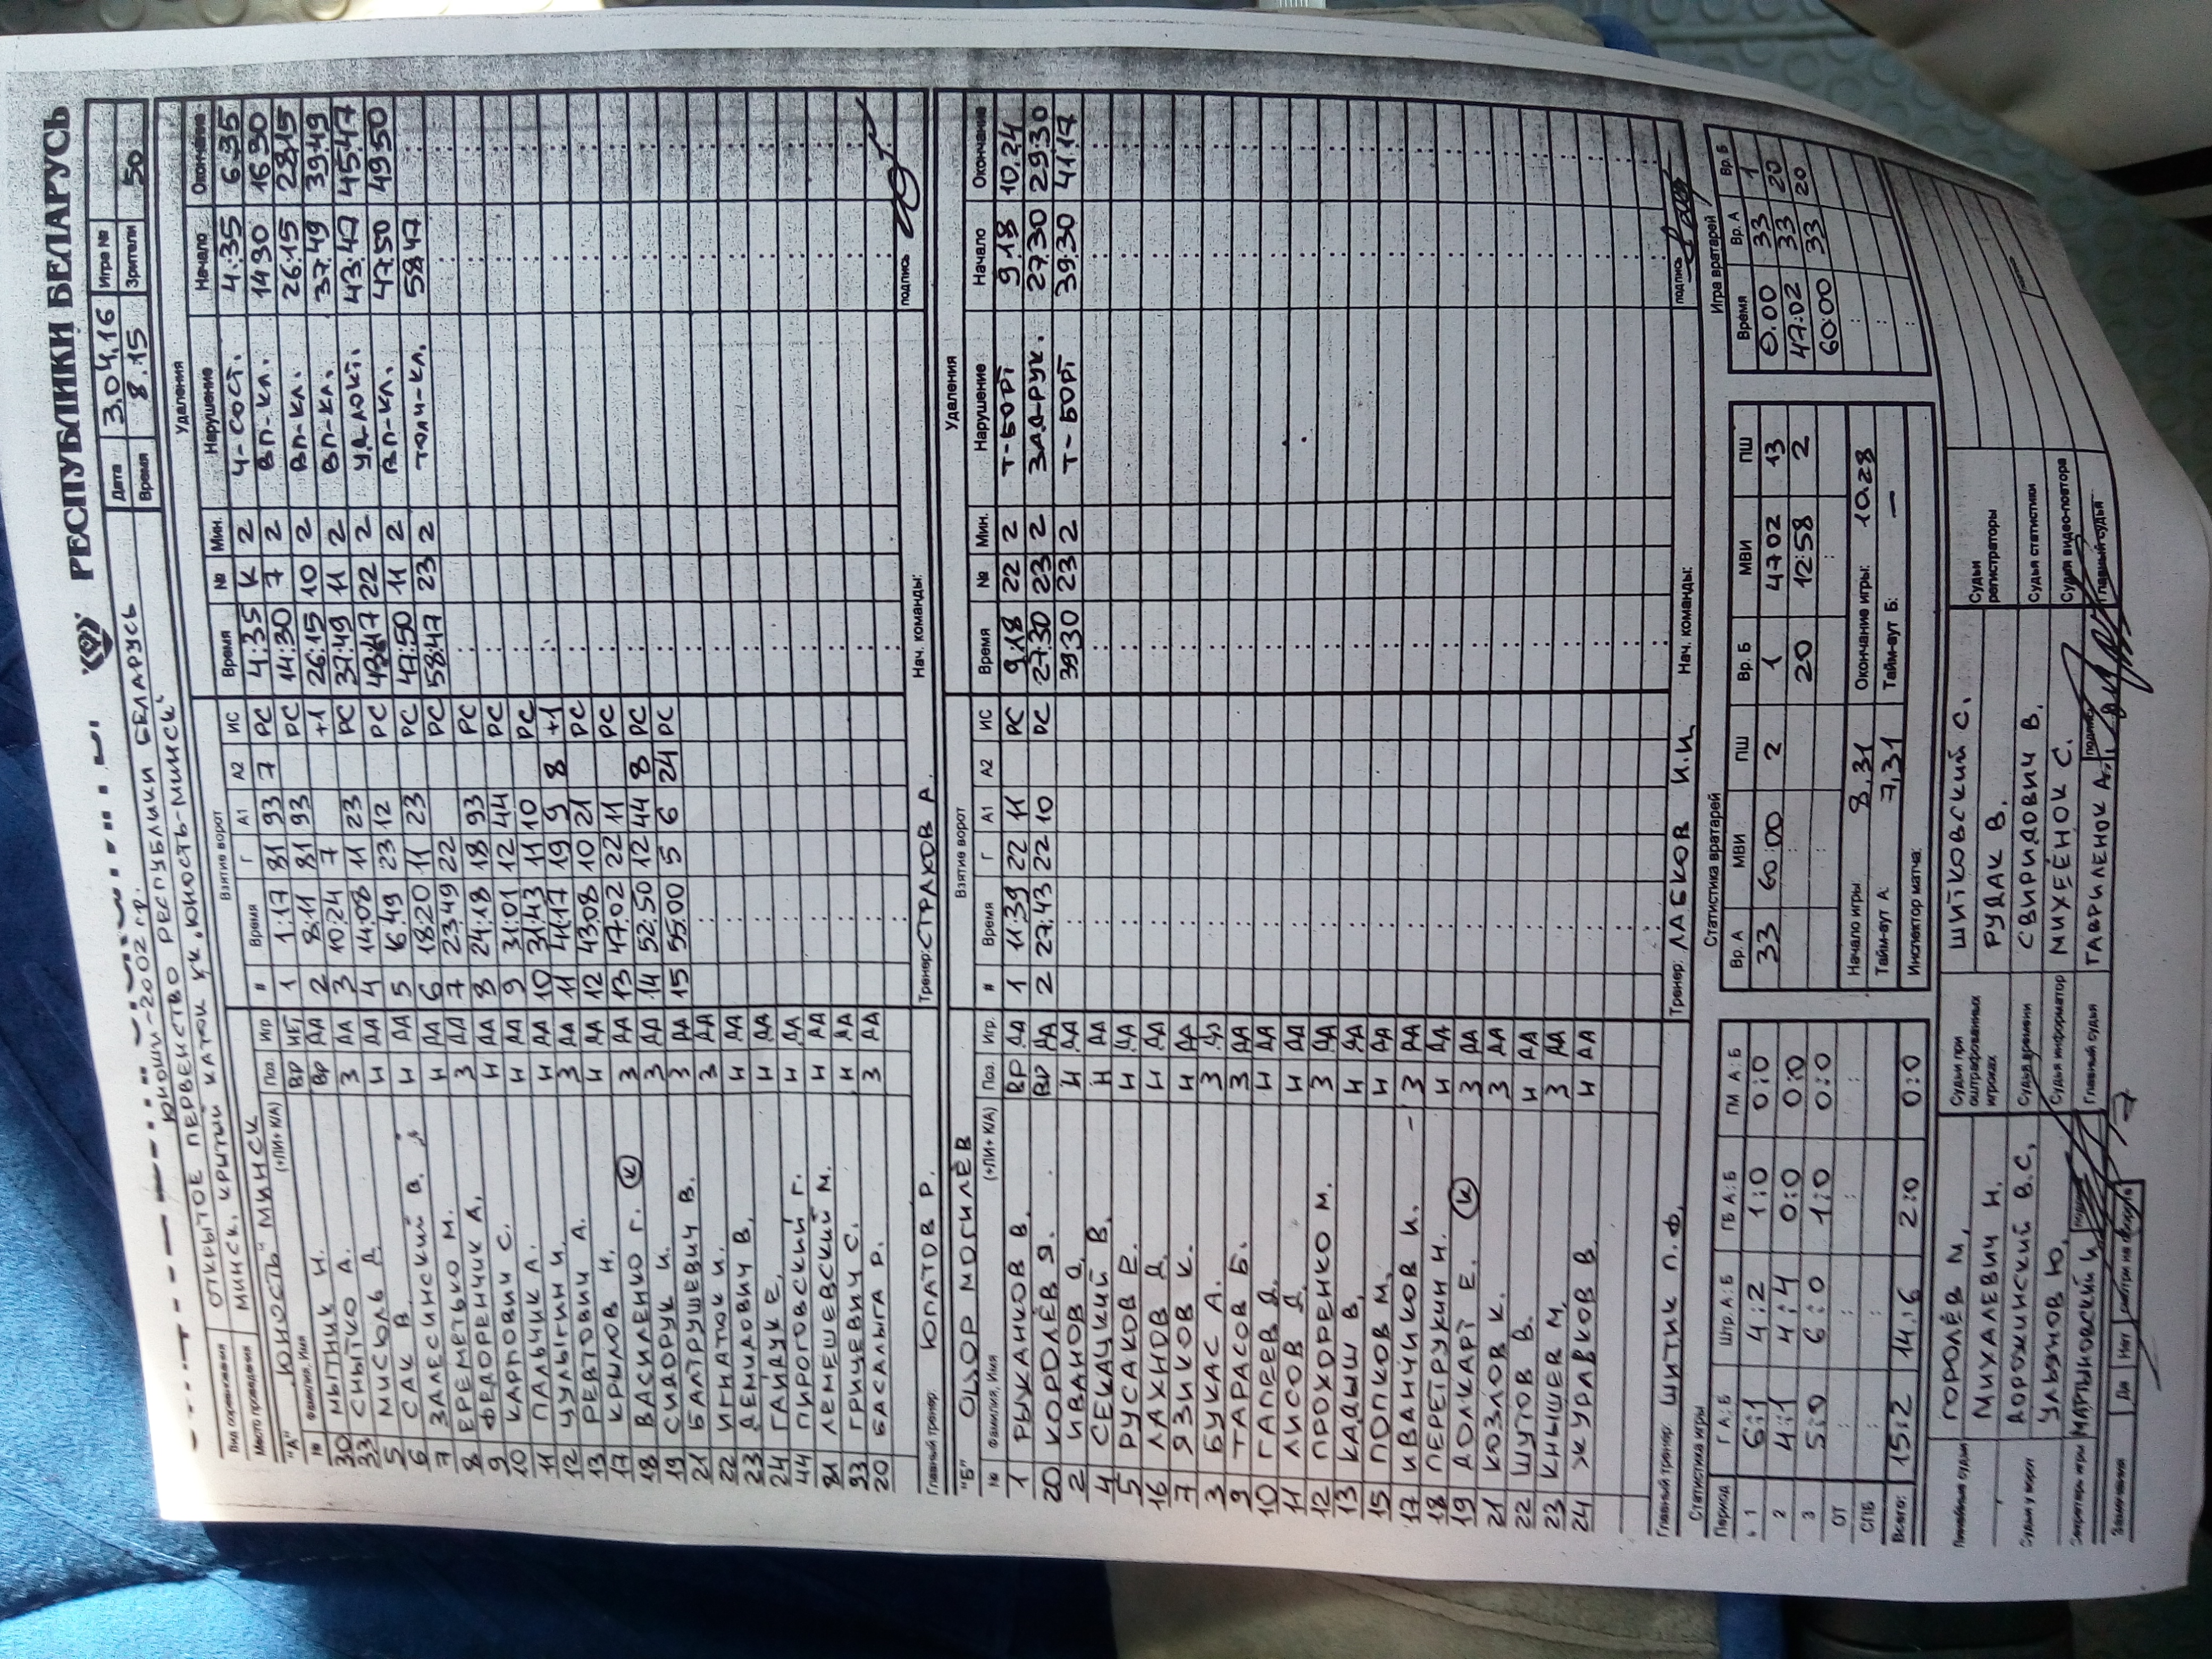 РЕСПУБЛИКИ БЕЛАРУСЬ
Юноши-2002 г.р.
Дата 3.04.16 Игра №
Вид соревнования ОТКРЫТОЕ ПЕРВЕНСТВО РЕСПУБЛИКИ БЕЛАРУСЬ
Время 8:15 Зрители 50
Место проведения МИНСК. КРЫТЫЙ КАТОК ХК "ЮНОСТЬ-МИНСК"
"А" "ЮНОСТЬ" МИНСК Взятие ворот Удаления
№ Фамилия, Имя (+ПИ+ К/А) Поз. Игр # Время Г А1 А2 ИС Время № Мин. Нарушение Начало Окончание
30 МЫТНИК Н. ВР НЕТ 1 1:17 81 93 7 РС 4:35 К 2 Ч-СОСТ. 4:35 6:35
33 СНЫТКО А. ВР ДА 2 8:11 81 93 РС 14:30 7 2 ВП-КЛ. 14 30 16 30
5 МИСЮЛЬ Д. З ДА 3 10:24 7 +1 26:15 10 2 ВП-КЛ. 26:15 28:15
6 САК В. Н ДА 4 14:08 11 23 РС 37:49 11 2 ВП-КЛ. 37:49 39:49
7 ЗАЛЕСИНСКИЙ В. Н ДА 5 16:49 23 12 РС 43:47 22 2 УД-ЛОКТ. 43:47 45:47
8 ЕРЕМЕТЬКО М. Н ДА 6 18:20 11 23 РС 47:50 11 2 ВП-КЛ. 47:50 49:50
9 ФЕДОРЕНЧИК А. З ДА 7 23:49 22 РС 58:47 23 2 ТОЛЧ-КЛ. 58:47
10 КАРПОВИЧ С. Н ДА 8 24:18 18 93 РС
11 ПАЛЬЧИК А. Н ДА 9 31:01 12 44 РС
12 ЧУЛЫГИН И. Н ДА 10 31:43 11 10 РС
13 РЕВТОВИЧ А. З ДА 11 41:17 19 9 8 +1
17 КРЫЛОВ Н. Н ДА 12 43:08 10 21 РС
18 ВАСИЛЕНКО Г. (К) З ДА 13 47:02 22 11 РС
19 СИДОРУК И. З ДА 14 52:50 12 44 8 РС
21 БАЛТРУШЕВИЧ В. З ДА 15 55:00 5 6 24 РС
22 ИГНАТЮК И. З ДА
23 ДЕМИДОВИЧ В. Н ДА
24 ГАЙДУК Е. Н ДА
44 ПИРОГОВСКИЙ Г. Н ДА
81 ЛЕМЕШЕВСКИЙ М. Н ДА
93 ГРИЦЕВИЧ С. Н ДА
20 БАСАЛЫГА Р. З ДА
Главный тренер: ЮПАТОВ Р. Тренер: СТРАХОВ А. Нач. команды: подпись
"Б" ОЦОР МОГИЛЁВ Взятие ворот Удаления
№ Фамилия, Имя (+ПИ+ К/А) Поз. Игр. # Время Г А1 А2 ИС Время № Мин. Нарушение Начало Окончание
1 РЫЖАНКОВ В. ВР ДА 1 11:39 22 11 РС 9:18 22 2 Т-БОРТ 9:18 10:24
20 КОРОЛЁВ Я. ВР ДА 2 27:43 22 10 РС 27:30 23 2 ЗАД-РУК. 27:30 29:30
2 ИВАНОВ О. Н ДА 39:30 23 2 Т-БОРТ 39:30 41:17
4 СЕКАЦКИЙ В. Н ДА
5 РУСАКОВ Е. Н ДА
16 ЛАХНОВ Д. Н ДА
7 ЯЗИКОВ К. Н ДА
3 БУКАС А. З ДА
9 ТАРАСОВ Б. З ДА
10 ГАПЕЕВ Д. Н ДА
11 ЛИСОВ Д. Н ДА
12 ПРОХОРЕНКО М. З ДА
13 КАДЫШ В. Н ДА
15 ПОПКОВ М. Н ДА
17 ИВАНЧИКОВ И. З ДА
18 ПЕРЕТРУКИН Н. Н ДА
19 ДОЛКАРТ Е. (К) З ДА
21 КОЗЛОВ К. З ДА
22 ШУТОВ В. Н ДА
23 КНЫШЕВ М. З ДА
24 ЖУРАВКОВ В. Н ДА
Главный тренер: ШИТИК П.Ф. Тренер: ЛАБКОВ И.И. Нач. команды: подпись
Статистика игры Статистика вратарей Игра вратарей
Период Г А:Б Штр. А:Б ГБ А:Б ГМ А:Б Вр. А МВИ ПШ Вр. Б МВИ ПШ Время Вр. А Вр. Б
1 6:1 4:2 1:0 0:0 33 60:00 2 1 47 02 13 0.00 33 1
2 4:1 4:4 0:0 0:0 20 12:58 2 47:02 33 20
3 5:0 6:0 1:0 0:0 60:00 33 20
ОТ Начало игры: 8,31 Окончание игры: 10.28
СПБ Тайм-аут А: 7,31 Тайм-аут Б: —
Всего: 15:2 14:6 2:0 0:0 Инспектор матча:
Линейные судьи ГОРОЛЁВ М. Судьи при оштрафованных игроках ШИТКОВСКИЙ С. Судьи регистраторы
МИХАЛЕВИЧ Н. РУДАК В.
Судьи у ворот ДОРОЖИНСКИЙ В.С. Судья времени СВИРИДОВИЧ В. Судья статистики
УЛЬЯНОВ Ю. Судья информатор МИХЕЁНОК С. Судья видео-повтора
Секретарь игры МАРТЫНОВСКИЙ И. Главный судья ГАВРИЛЕНОК А. подпись Главный судья
Замечания Да Нет